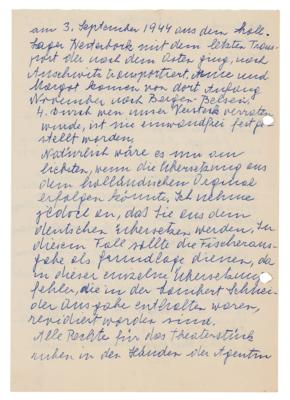 am 3. September 1944 aus dem holl.
Lager Westerbork mit dem letzten Trans-
port der nach dem Osten ging, nach
Auschwitz transportiert. Anne und
Margot kamen von dort Anfang
November nach Bergen-Belsen.
4. Durch wen unser Versteck verraten
wurde, ist nie einwandfrei festge-
stellt worden.
Natürlich wäre es mir am
liebsten, wenn die Übersetzung aus
dem holländischen Original
erfolgen könnte. Ich nehme
jedoch an, daß Sie aus dem
deutschen übersetzen werden. In
diesem Fall sollte die Fischeraus-
gabe als Grundlage dienen, da
in dieser einzelne Übersetzungs-
fehler, die in der Lambert Schnei-
der Ausgabe enthalten waren,
revidiert worden sind.
Alle Rechte für das Theaterstück
ruhen in den Händen der Agentin